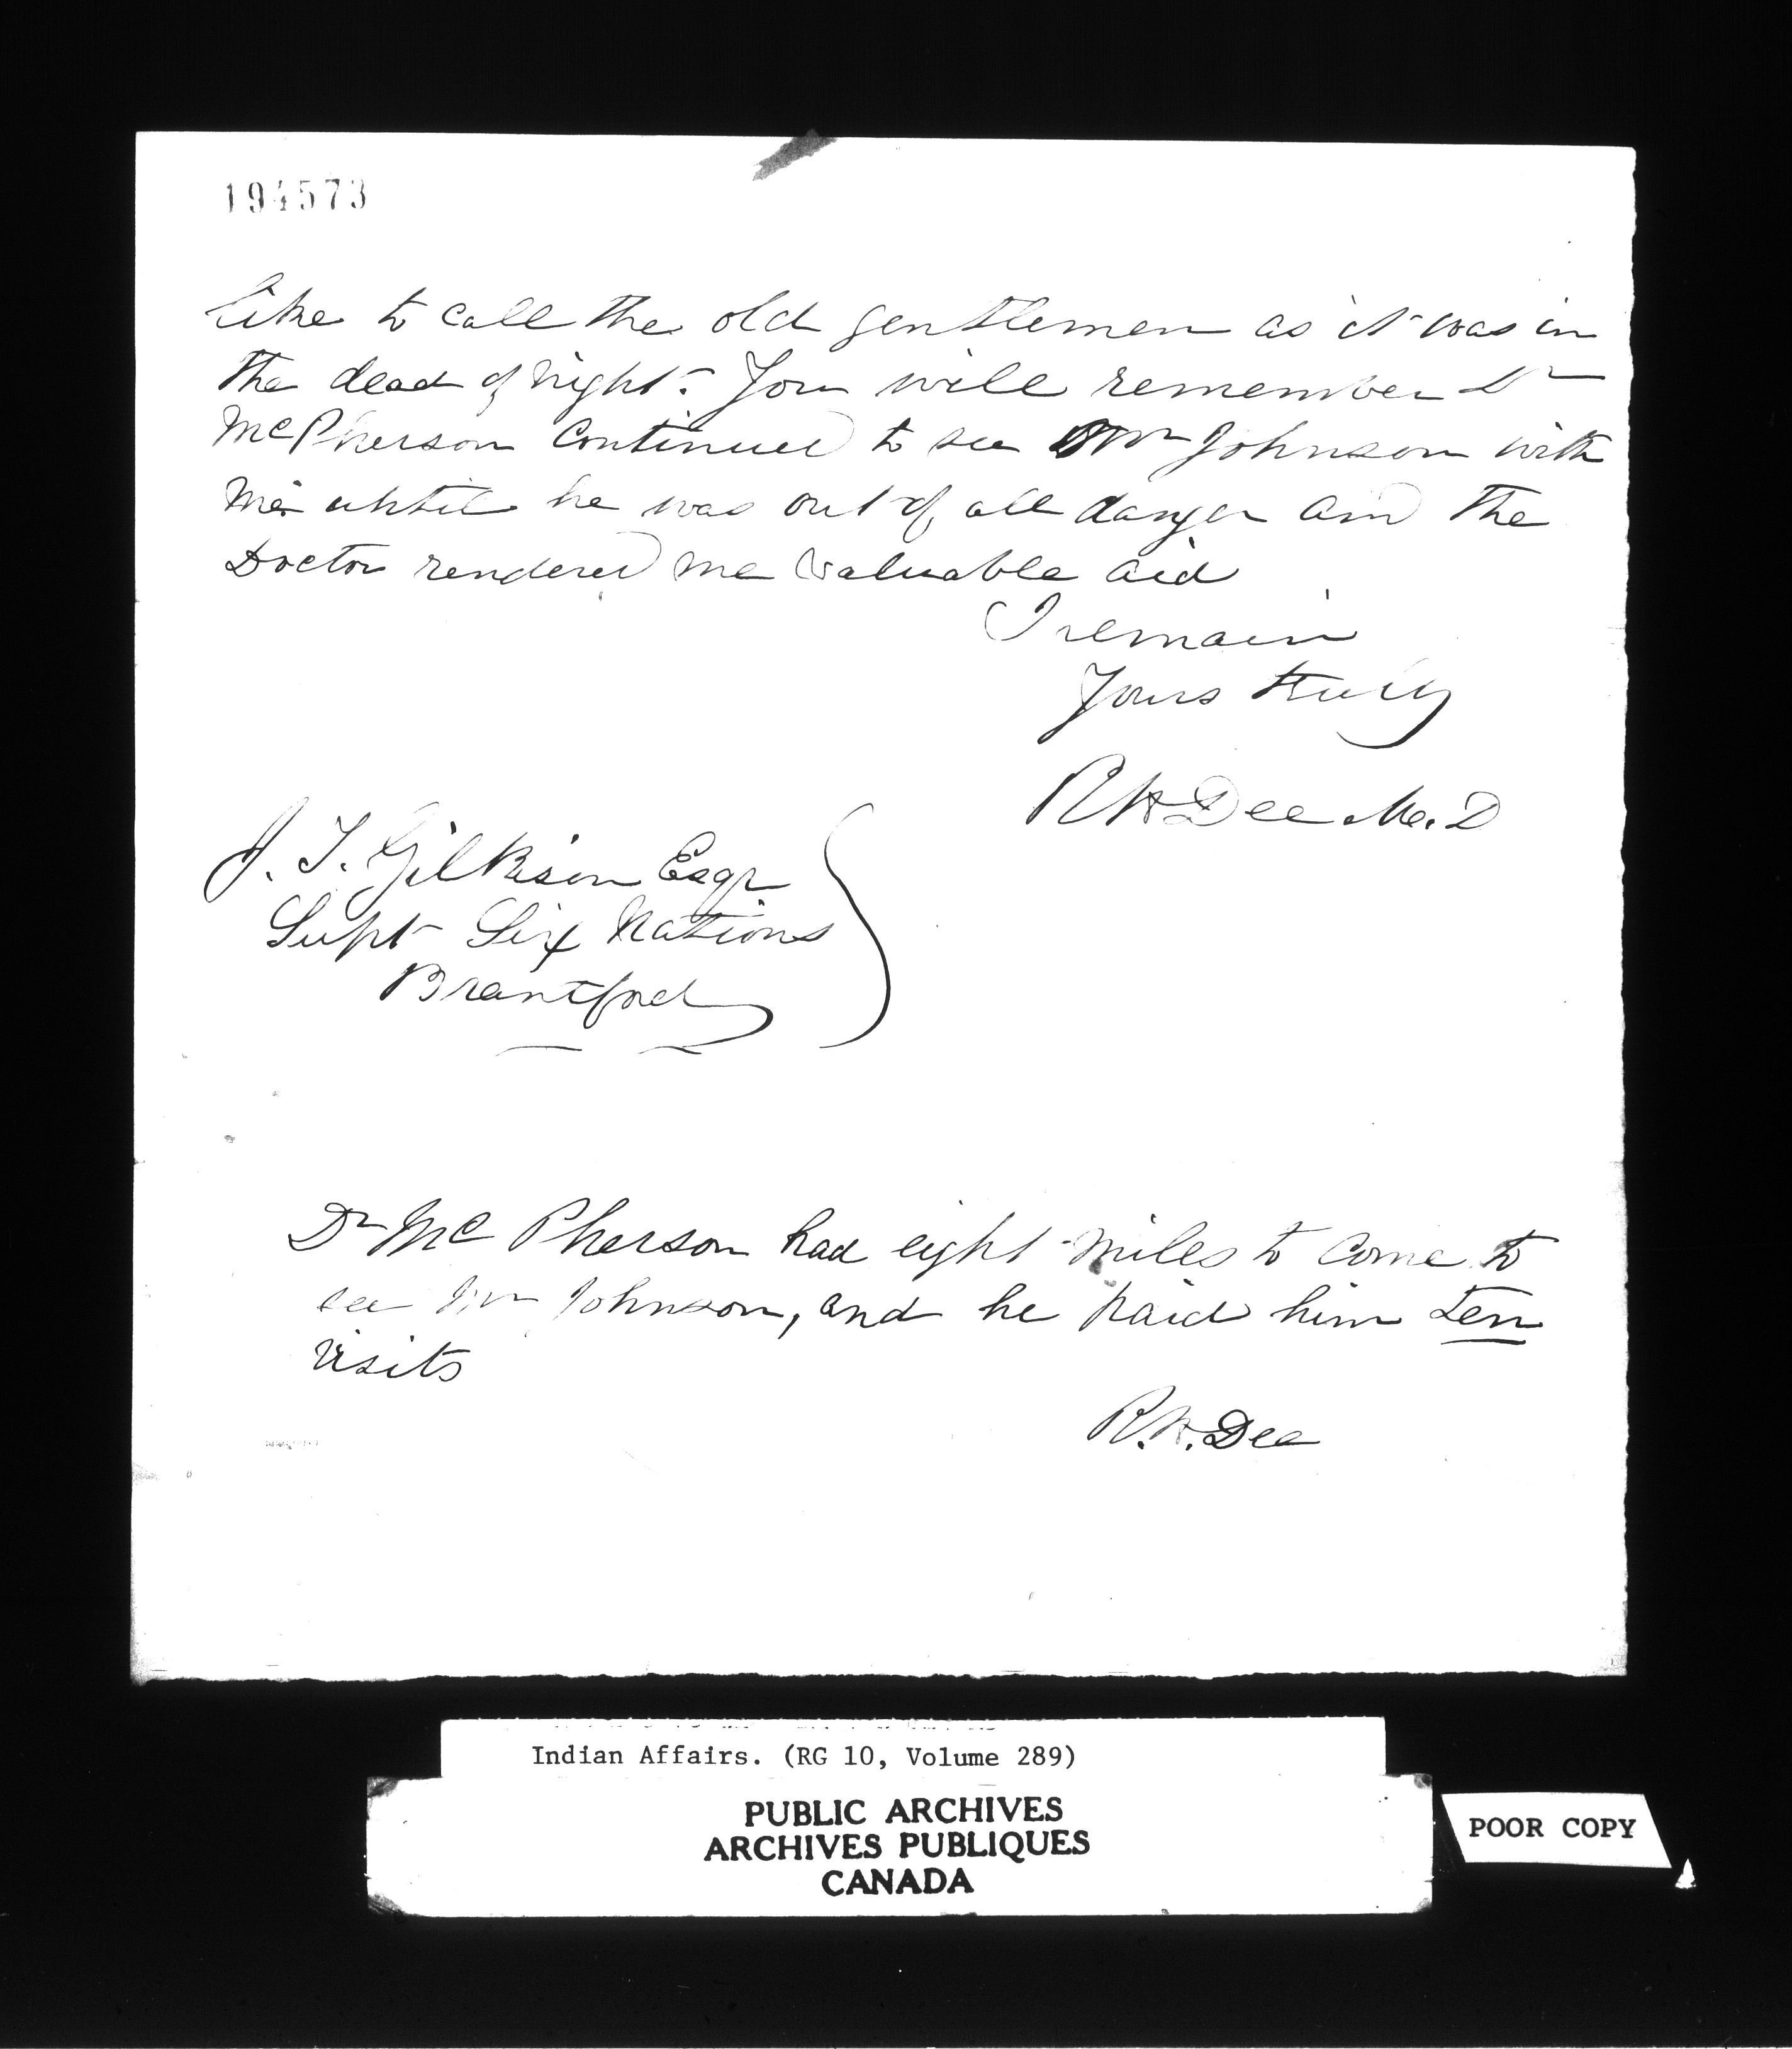 194573
like to call the old gentlemen as it was in
the dead of night. You will remember Dr
McPherson continued to see Mr Johnson with
me until he was out of all danger and the
Doctor rendered me valuable aid
I remain
Yours truly
R H Dee M. D
J. T. Gilkison Esqr
Supt Six Nations
Brantford
Dr Mc Pherson had eight miles to come to
see Mr Johnson, and he paid him ten
visits
R. H. Dee
Indian Affairs. (RG 10, Volume 289)
PUBLIC ARCHIVES
ARCHIVES PUBLIQUES
CANADA
POOR COPY